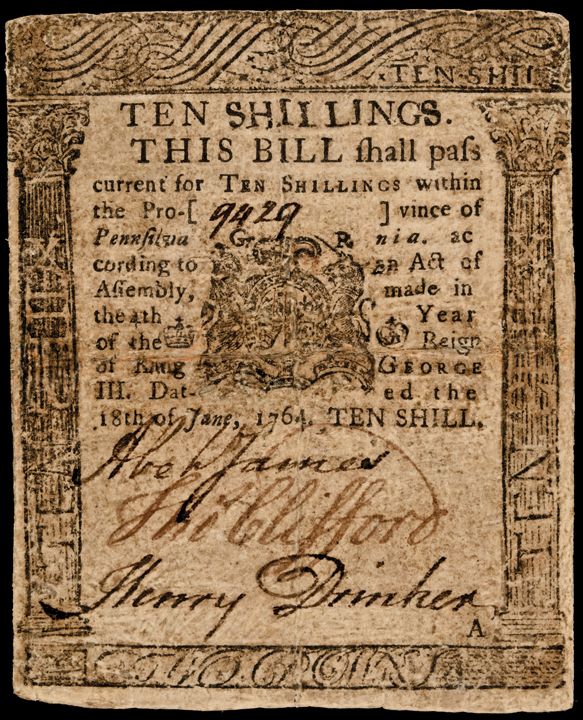 TEN SHILL
TEN SHILLINGS.
THIS BILL ſhall paſs
current for TEN SHILLINGS within
the Pro-[ 9429 ] vince of
Pennſilvania. ac
G R
cording to an Act of
Aſſembly, made in
the 4th Year
of the Reign
of King GEORGE
III. Dat- ed the
18th of June, 1764. TEN SHILL.
Abel James
Clifford
Henry Drinker
A
TEN
TEN